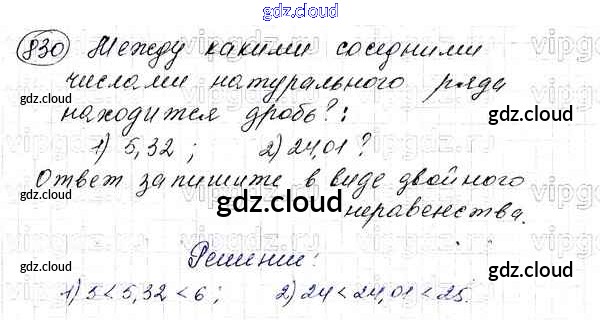 gdz.cloud
830 Между какими соседними
числами натурального ряда
gdz.cloud gdz.cloud
находится дробь?:
gdz.cloud
1) 5,32 ; 2) 24,01 ?
Ответ запишите в виде двойного
gdz.cloud
неравенства.
Решение:
gdz.cloud gdz.cloud
1) 5 < 5,32 < 6 ; 2) 24 < 24,01 < 25.
gdz.cloud